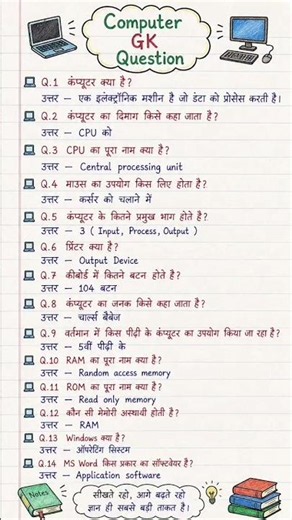 Computer
GK
Question
Q.1 कंप्यूटर क्या है?
उत्तर – एक इलेक्ट्रॉनिक मशीन है जो डेटा को प्रोसेस करती है।
Q.2 कंप्यूटर का दिमाग किसे कहा जाता है?
उत्तर – CPU को
Q.3 CPU का पूरा नाम क्या है?
उत्तर – Central processing unit
Q.4 माउस का उपयोग किस लिए होता है?
उत्तर – कर्सर को चलाने में
Q.5 कंप्यूटर के कितने प्रमुख भाग होते है?
उत्तर – 3 ( Input, Process, Output )
Q.6 प्रिंटर क्या है?
उत्तर – Output Device
Q.7 कीबोर्ड में कितने बटन होते है?
उत्तर – 104 बटन
Q.8 कंप्यूटर का जनक किसे कहा जाता है?
उत्तर – चार्ल्स बैबेज
Q.9 वर्तमान में किस पीढ़ी के कंप्यूटर का उपयोग किया जा रहा है?
उत्तर – 5वीं पीढ़ी के
Q.10 RAM का पूरा नाम क्या है?
उत्तर – Random access memory
Q.11 ROM का पूरा नाम क्या है?
उत्तर – Read only memory
Q.12 कौन सी मेमोरी अस्थायी होती है?
उत्तर – RAM
Q.13 Windows क्या है?
उत्तर – ऑपरेटिंग सिस्टम
Q.14 MS Word किस प्रकार का सॉफ्टवेयर है?
उत्तर – Application software
Notes
सीखते रहो, आगे बढ़ते रहो
ज्ञान ही सबसे बड़ी ताकत है।